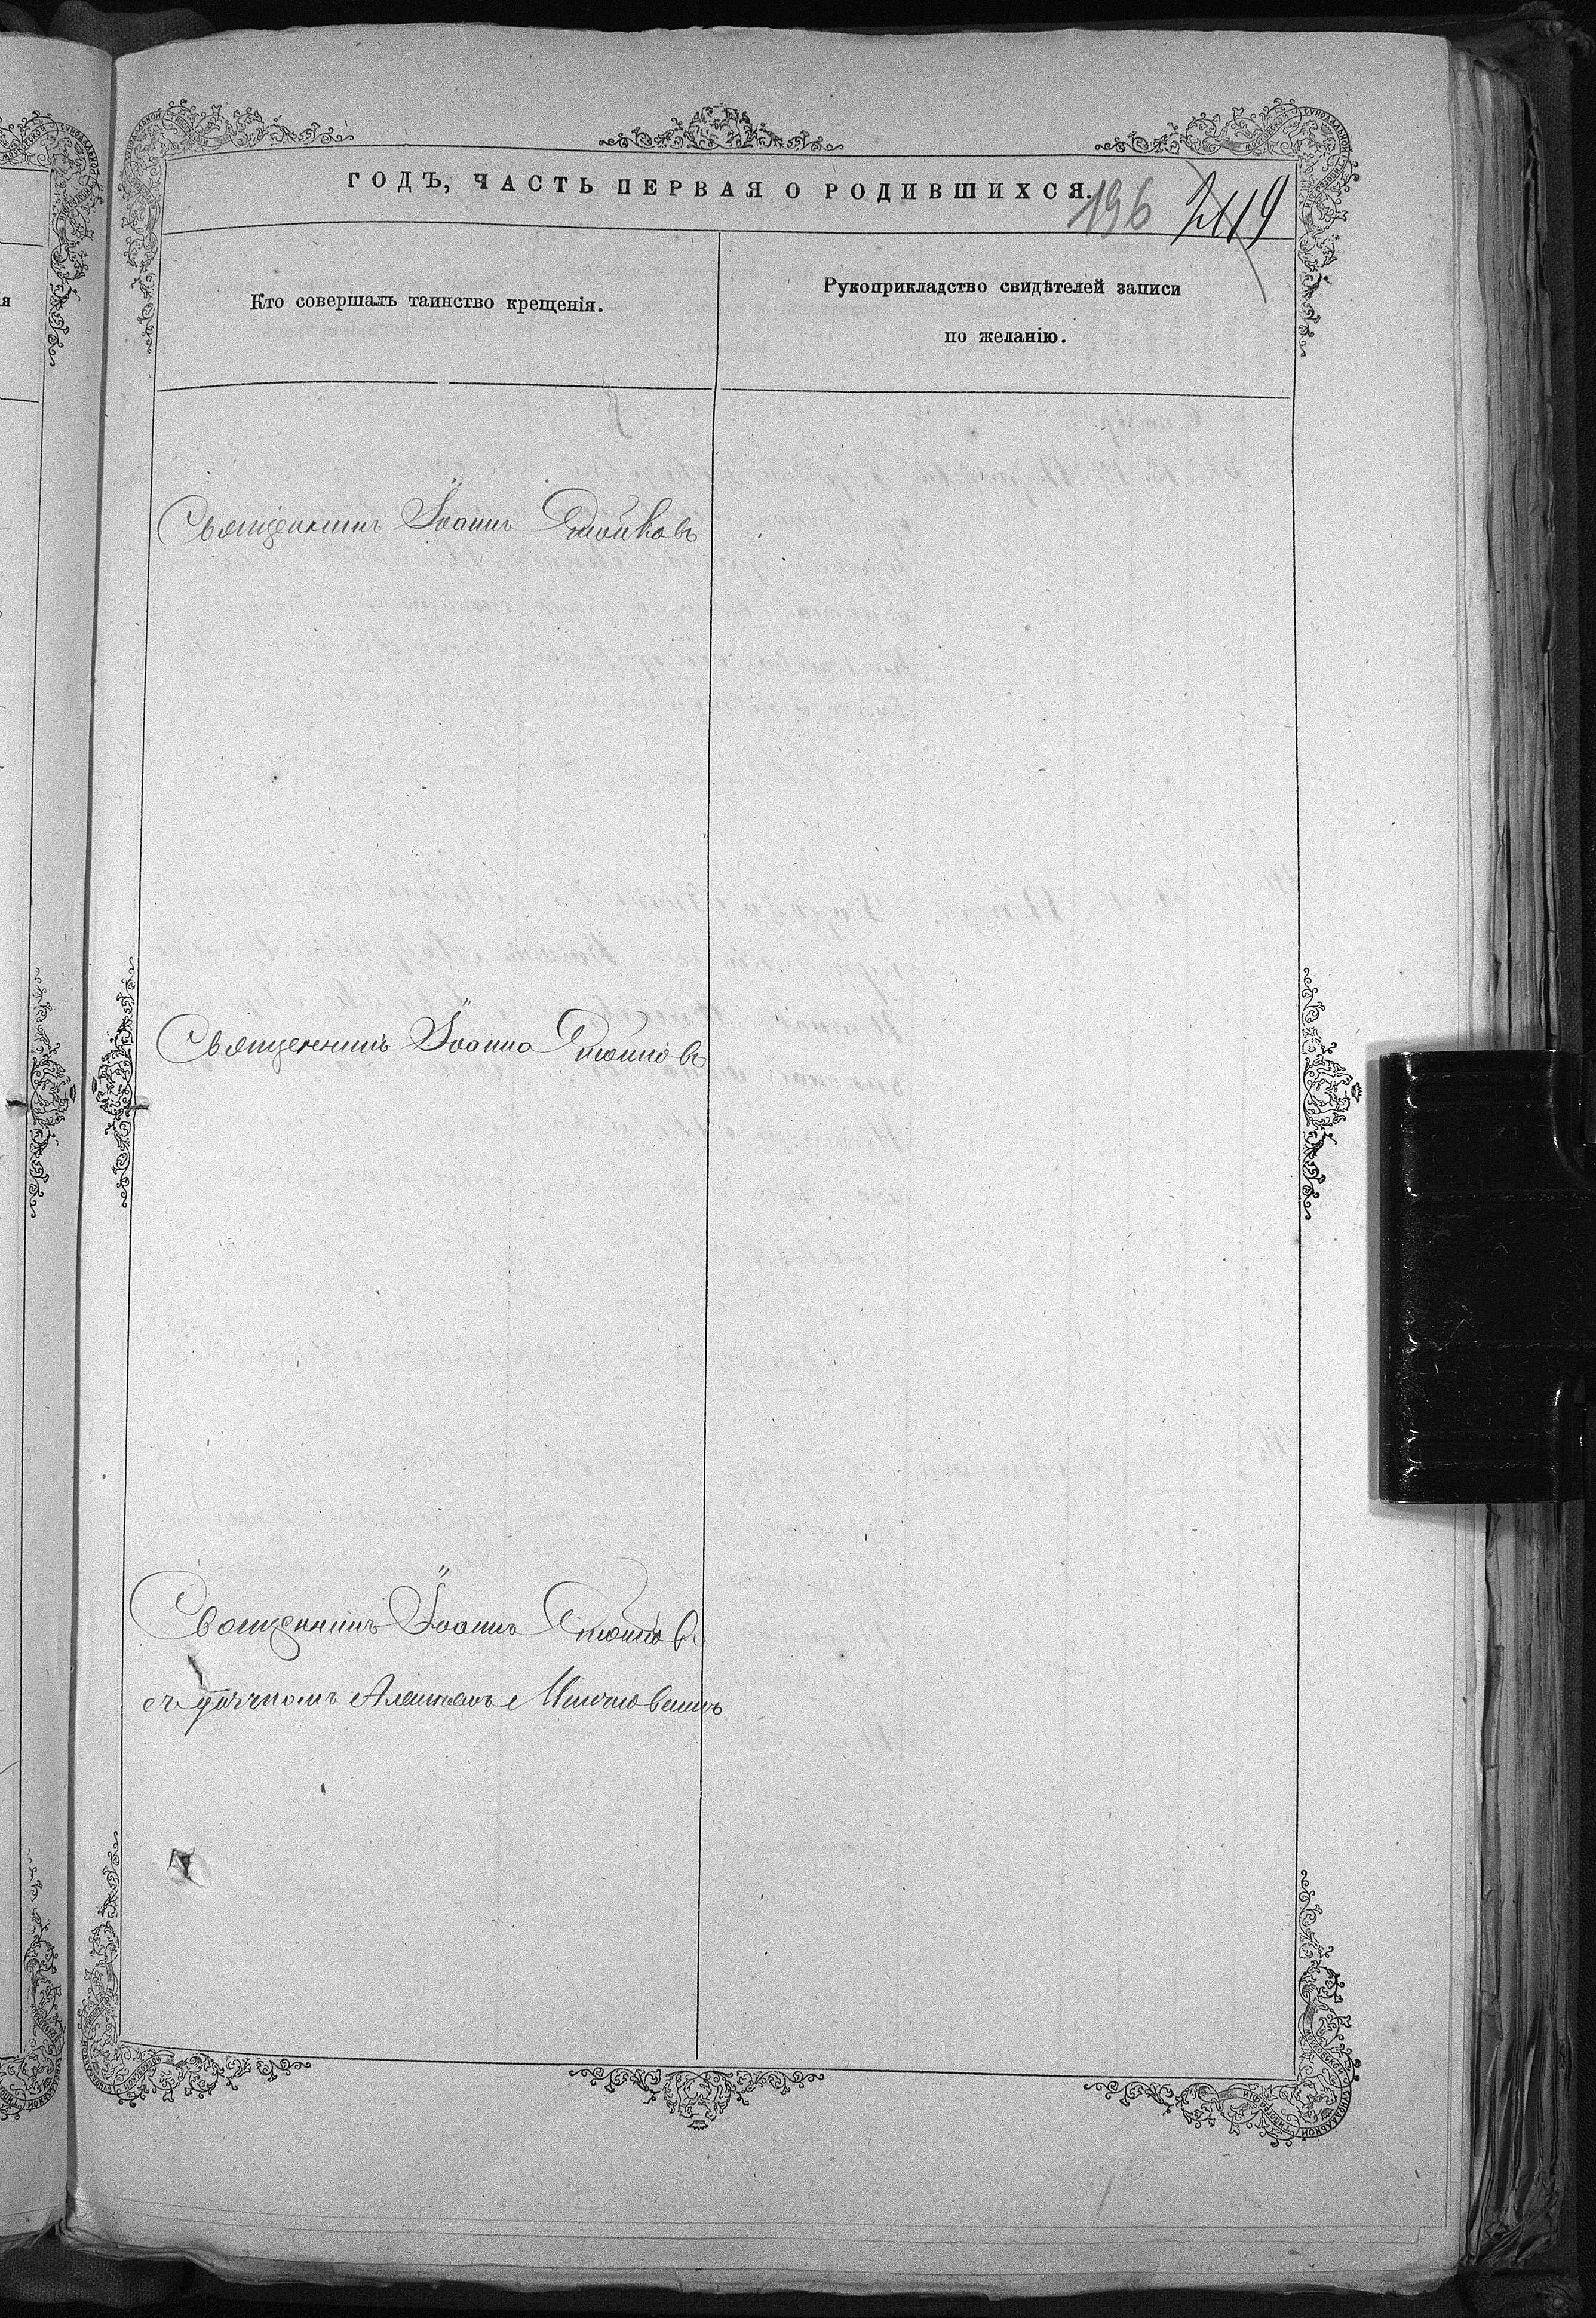 ГОДЪ, ЧАСТЬ ПЕРВАЯ О РОДИВШИХСЯ.
196
Кто совершалъ таинство крещенія.
Рукоприкладство свидѣтелей записи
по желанію.
Священникъ Іоаннъ Стойковъ
Священникъ Іоанно Стойковъ
Священникъ Іоаннъ Стойковъ
съ дьячкомъ